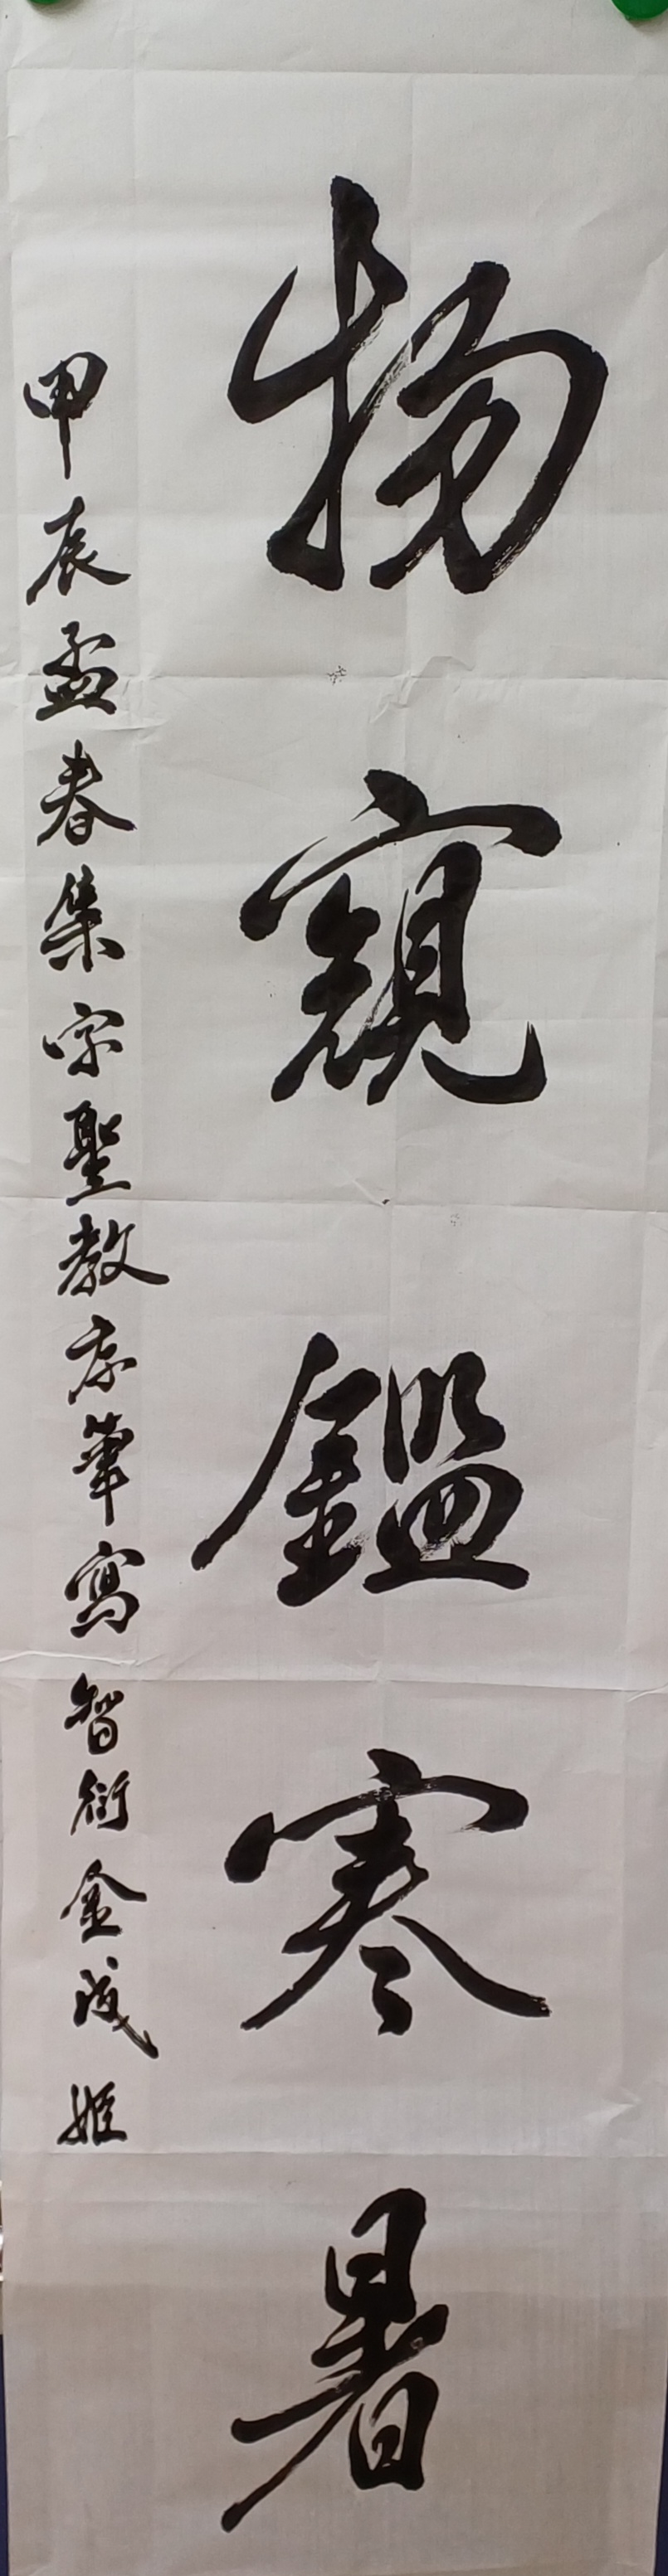 物窺鑑寒暑
甲辰孟春集字聖教序筆寫 智衍金成姬